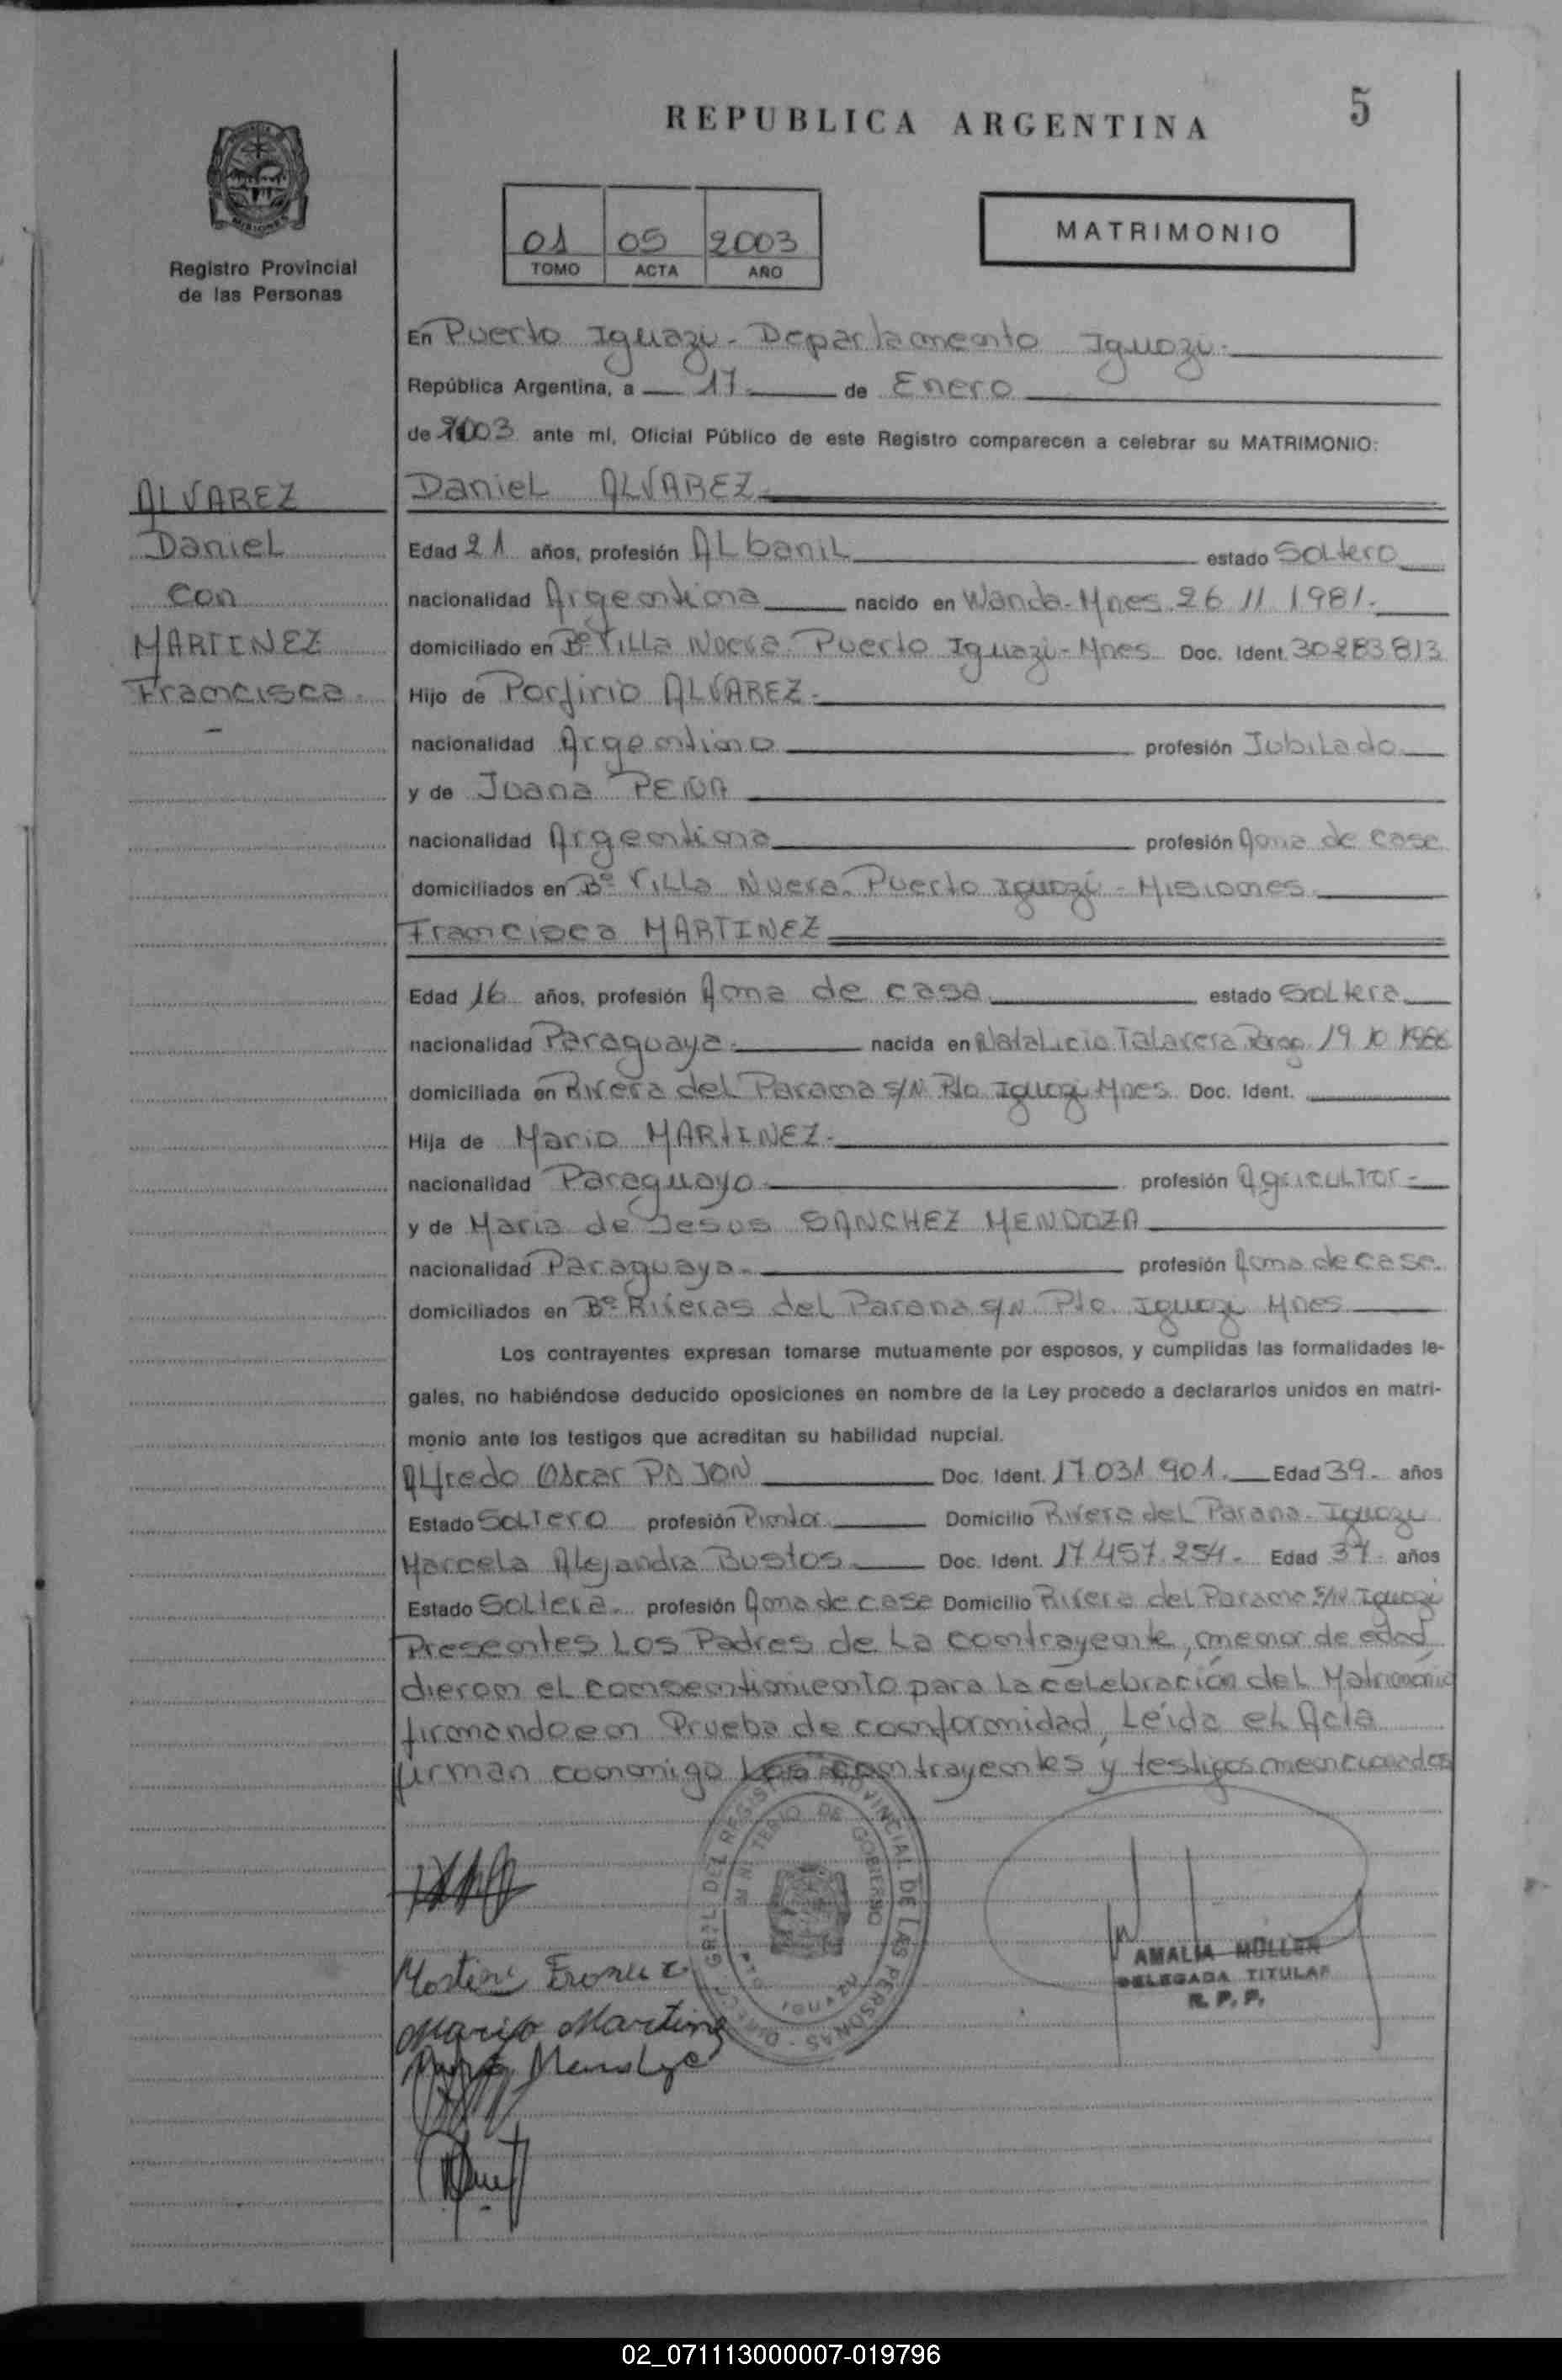 5
REPUBLICA ARGENTINA
01 05 2003
TOMO ACTA AÑO
MATRIMONIO
Registro Provincial
de las Personas
En Puerto Iguazú - Departamento Iguazú.
República Argentina, a 17 de Enero
de 2003 ante mí, Oficial Público de este Registro comparecen a celebrar su MATRIMONIO:
ALVAREZ
Daniel
con
MARTINEZ
Francisca
Daniel ALVAREZ
Edad 21 años, profesión ALbañiL estado Soltero
nacionalidad Argentina nacido en Wanda - Mnes 26 11 1981.
domiciliado en Bº Villa Nueva Puerto Iguazú - Mnes Doc. Ident. 30283813
Hijo de Porfirio ALVAREZ.
nacionalidad Argentino profesión Jubilado
y de Juana PEÑA
nacionalidad Argentina profesión Ama de casa
domiciliados en Bº Villa Nueva. Puerto Iguazú - Misiones
Francisca MARTINEZ
Edad 16 años, profesión Ama de casa estado Soltera
nacionalidad Paraguaya nacida en Natalicio Talavera Parag 19 10 1986
domiciliada en Rivera del Parana S/N Pto Iguazú Mnes Doc. Ident.
Hija de Mario MARTINEZ.
nacionalidad Paraguayo profesión Agricultor
y de Maria de Jesus SANCHEZ MENDOZA
nacionalidad Paraguaya profesión Ama de casa.
domiciliados en Bº Riveras del Parana S/N Pto. Iguazú Mnes
Los contrayentes expresan tomarse mutuamente por esposos, y cumplidas las formalidades le-
gales, no habiéndose deducido oposiciones en nombre de la Ley procedo a declararlos unidos en matri-
monio ante los testigos que acreditan su habilidad nupcial.
Alfredo Oscar PAJON Doc. Ident. 17.031.901. Edad 39 años
Estado Soltero profesión Pintor Domicilio Rivera del Parana - Iguazú
Marcela Alejandra Bustos Doc. Ident. 17.457.254. Edad 37 años
Estado Soltera profesión Ama de casa Domicilio Rivera del Parana S/N Iguazú
Presentes Los Padres de La contrayente, menor de edad
dieron el consentimiento para La celebración del Matrimonio
firmando en Prueba de conformidad, Leída el Acta
firman conmigo Los contrayentes y testigos mencionados
DIRECC. GRAL. DEL REGISTRO PROVINCIAL DE LAS PERSONAS
MINISTERIO DE GOBIERNO
PTO. IGUAZU
AMALIA MULLER
DELEGADA TITULAR
R. P. P.
Mario Martinez
02_071113000007-019796